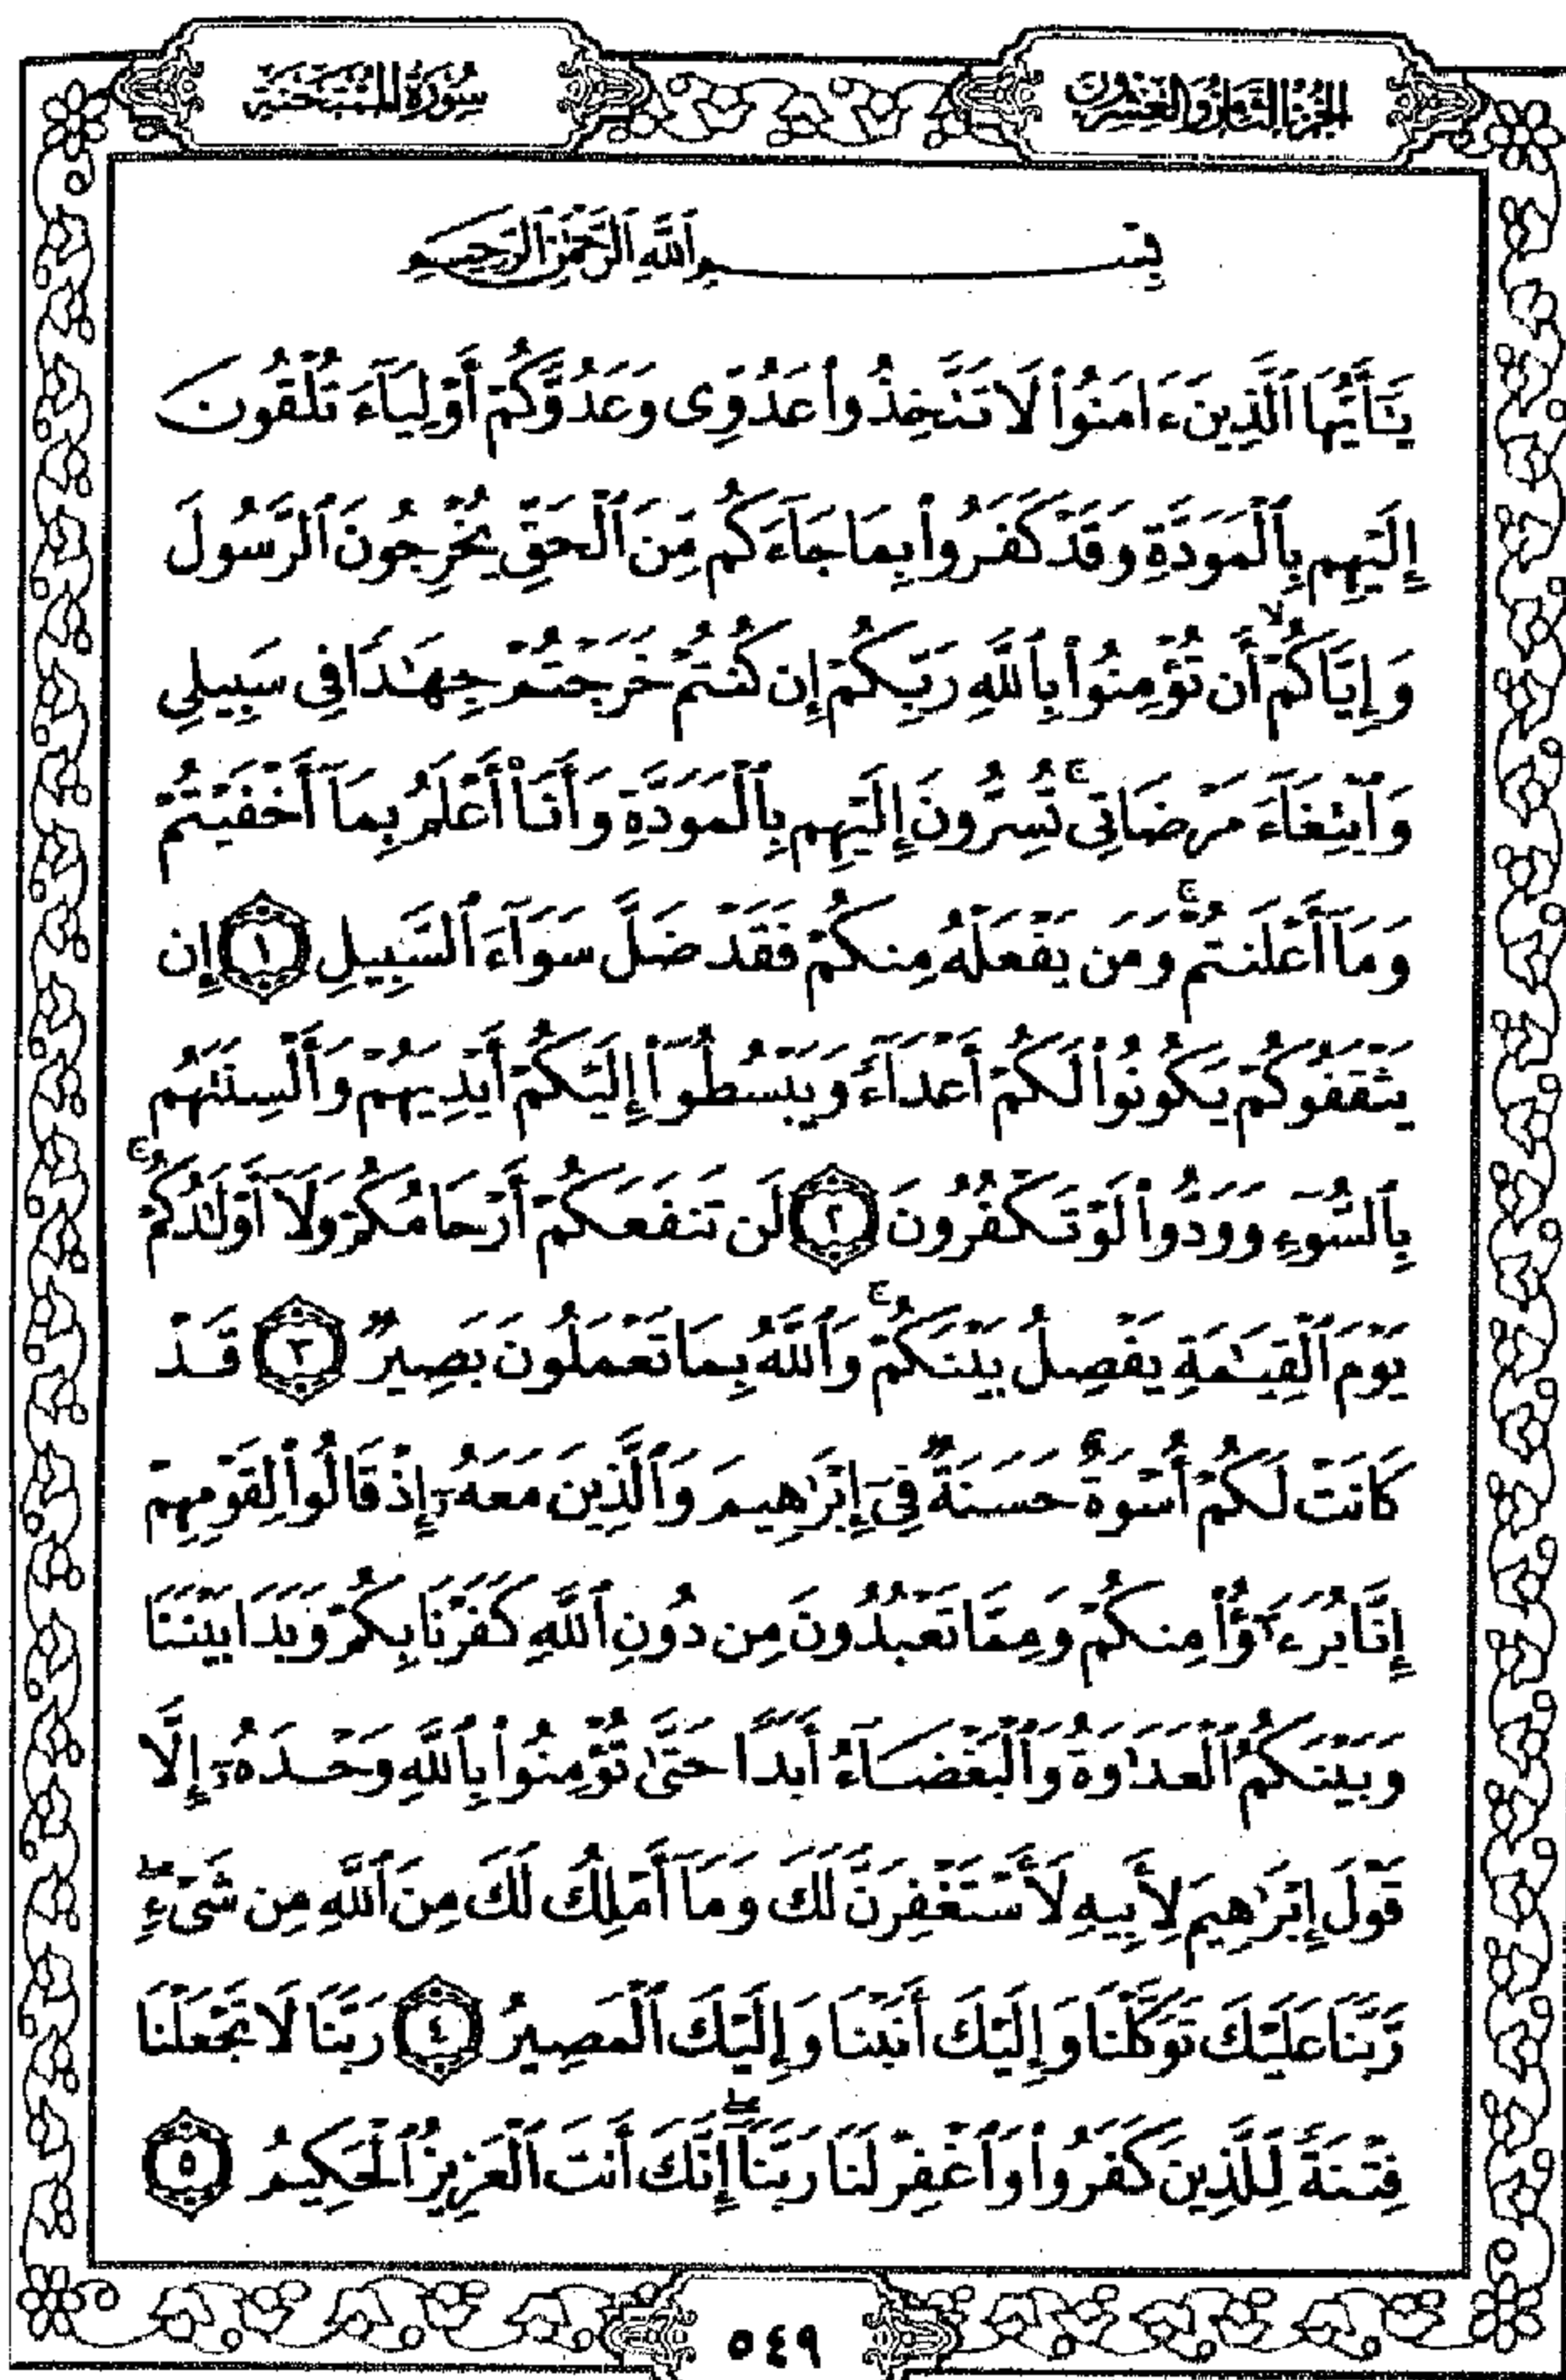 الجزء الثامن والعشرون
سورة الممتحنة
بِسْمِ ٱللَّهِ ٱلرَّحْمَٰنِ ٱلرَّحِيمِ
يَٰٓأَيُّهَا ٱلَّذِينَ ءَامَنُوا۟ لَا تَتَّخِذُوا۟ عَدُوِّى وَعَدُوَّكُمْ أَوْلِيَآءَ تُلْقُونَ
إِلَيْهِم بِٱلْمَوَدَّةِ وَقَدْ كَفَرُوا۟ بِمَا جَآءَكُم مِّنَ ٱلْحَقِّ يُخْرِجُونَ ٱلرَّسُولَ
وَإِيَّاكُمْ ۙ أَن تُؤْمِنُوا۟ بِٱللَّهِ رَبِّكُمْ إِن كُنتُمْ خَرَجْتُمْ جِهَٰدًا فِى سَبِيلِى
وَٱبْتِغَآءَ مَرْضَاتِى ۚ تُسِرُّونَ إِلَيْهِم بِٱلْمَوَدَّةِ وَأَنَا۠ أَعْلَمُ بِمَآ أَخْفَيْتُمْ
وَمَآ أَعْلَنتُمْ ۚ وَمَن يَفْعَلْهُ مِنكُمْ فَقَدْ ضَلَّ سَوَآءَ ٱلسَّبِيلِ ١ إِن
يَثْقَفُوكُمْ يَكُونُوا۟ لَكُمْ أَعْدَآءً وَيَبْسُطُوٓا۟ إِلَيْكُمْ أَيْدِيَهُمْ وَأَلْسِنَتَهُم
بِٱلسُّوٓءِ وَوَدُّوا۟ لَوْ تَكْفُرُونَ ٢ لَن تَنفَعَكُمْ أَرْحَامُكُمْ وَلَآ أَوْلَٰدُكُمْ ۚ
يَوْمَ ٱلْقِيَٰمَةِ يَفْصِلُ بَيْنَكُمْ ۚ وَٱللَّهُ بِمَا تَعْمَلُونَ بَصِيرٌ ٣ قَدْ
كَانَتْ لَكُمْ أُسْوَةٌ حَسَنَةٌ فِىٓ إِبْرَٰهِيمَ وَٱلَّذِينَ مَعَهُۥٓ إِذْ قَالُوا۟ لِقَوْمِهِمْ
إِنَّا بُرَءَٰٓؤُا۟ مِنكُمْ وَمِمَّا تَعْبُدُونَ مِن دُونِ ٱللَّهِ كَفَرْنَا بِكُمْ وَبَدَا بَيْنَنَا
وَبَيْنَكُمُ ٱلْعَدَٰوَةُ وَٱلْبَغْضَآءُ أَبَدًا حَتَّىٰ تُؤْمِنُوا۟ بِٱللَّهِ وَحْدَهُۥٓ إِلَّا
قَوْلَ إِبْرَٰهِيمَ لِأَبِيهِ لَأَسْتَغْفِرَنَّ لَكَ وَمَآ أَمْلِكُ لَكَ مِنَ ٱللَّهِ مِن شَىْءٍ ۖ
رَّبَّنَا عَلَيْكَ تَوَكَّلْنَا وَإِلَيْكَ أَنَبْنَا وَإِلَيْكَ ٱلْمَصِيرُ ٤ رَبَّنَا لَا تَجْعَلْنَا
فِتْنَةً لِّلَّذِينَ كَفَرُوا۟ وَٱغْفِرْ لَنَا رَبَّنَآ ۖ إِنَّكَ أَنتَ ٱلْعَزِيزُ ٱلْحَكِيمُ ٥
٥٤٩